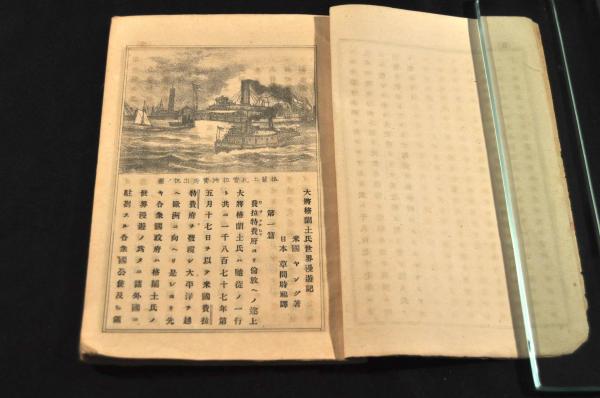 大將格蘭土氏世界漫遊記
米國 ヤング著
日本 草間時福譯
第一篇
費拉特費府ヨリ倫敦ヘノ途上
大將格蘭土氏ハ隨從ノ一行
ト共ニ一千八百七十七年第
五月十七日ヲ以テ米國費拉
特費府ヲ發帆シ大平洋ヲ越
ヘ歐洲ニ向ヘリ是レヨリ先
キ合衆國政府ハ格蘭土氏ノ
世界漫遊ノ爲メニ諸外國ニ
駐剳スル合衆國公使及ヒ領